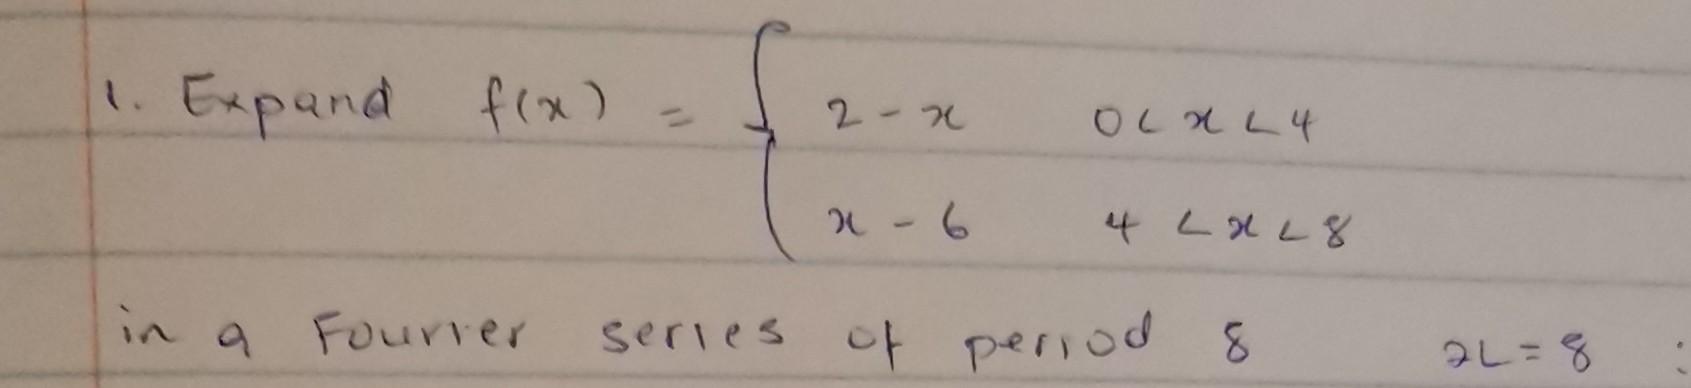 1. Expand f(x) = { 2 - x 0 < x < 4
x - 6 4 < x < 8
in a Fourier series of period 8 2L = 8 :